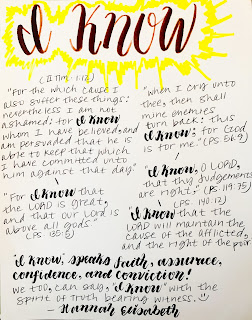 I Know
(II Tim. 1:12)
"For the which cause I
also suffer these things:
nevertheless I am not
ashamed: for I know
whom I have believed, and
am persuaded that he is
able to keep that which
I have committed unto
him against that day."
"For I know that
the LORD is great,
and that our Lord is
above all gods"
(PS. 135:5)
"When I cry unto
thee, then shall
mine enemies
turn back: this
I know; for God
is for me." (PS. 56:9)
"I know, O LORD,
that thy judgements
are right." (PS. 119:75)
(PS. 140:12)
"I know that the
LORD will maintain the
cause of the afflicted,
and the right of the poor."
"I know," speaks faith, assurance,
confidence, and conviction!
We too, can say, "I know" with the
spirit of truth bearing witness.
- Hannah Elisabeth